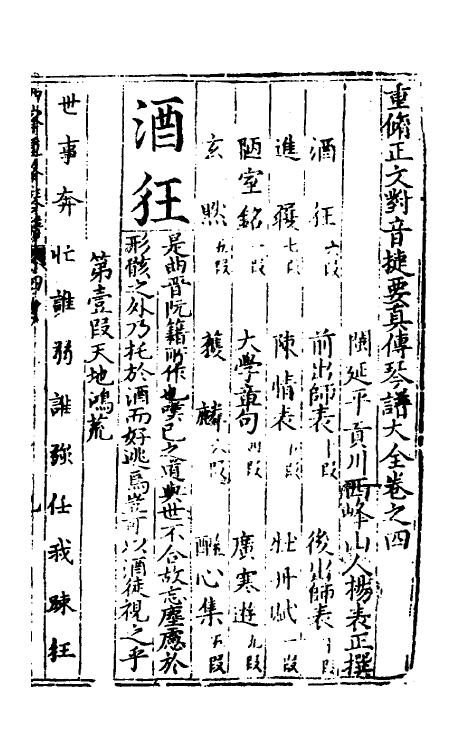 重脩正文對音捷要真傳琴譜大全卷之四
閩延平貢川西峰山人楊表正撰
酒狂六段 前出師表十段 後出師表十段
進履七段 陳情表十段 牡丹賦一段
陋室銘一段 大學章句四段 廣寒遊九段
玄默九段 獲麟六段 醒心集五段
酒狂
是曲晋阮籍所作也嘆已之道與世不合故忘塵慮於
形骸之外乃托於酒而好逃焉豈可以酒徒視之乎
第壹段天地鴻荒
世事奔忙誰弱誰強任我踈狂